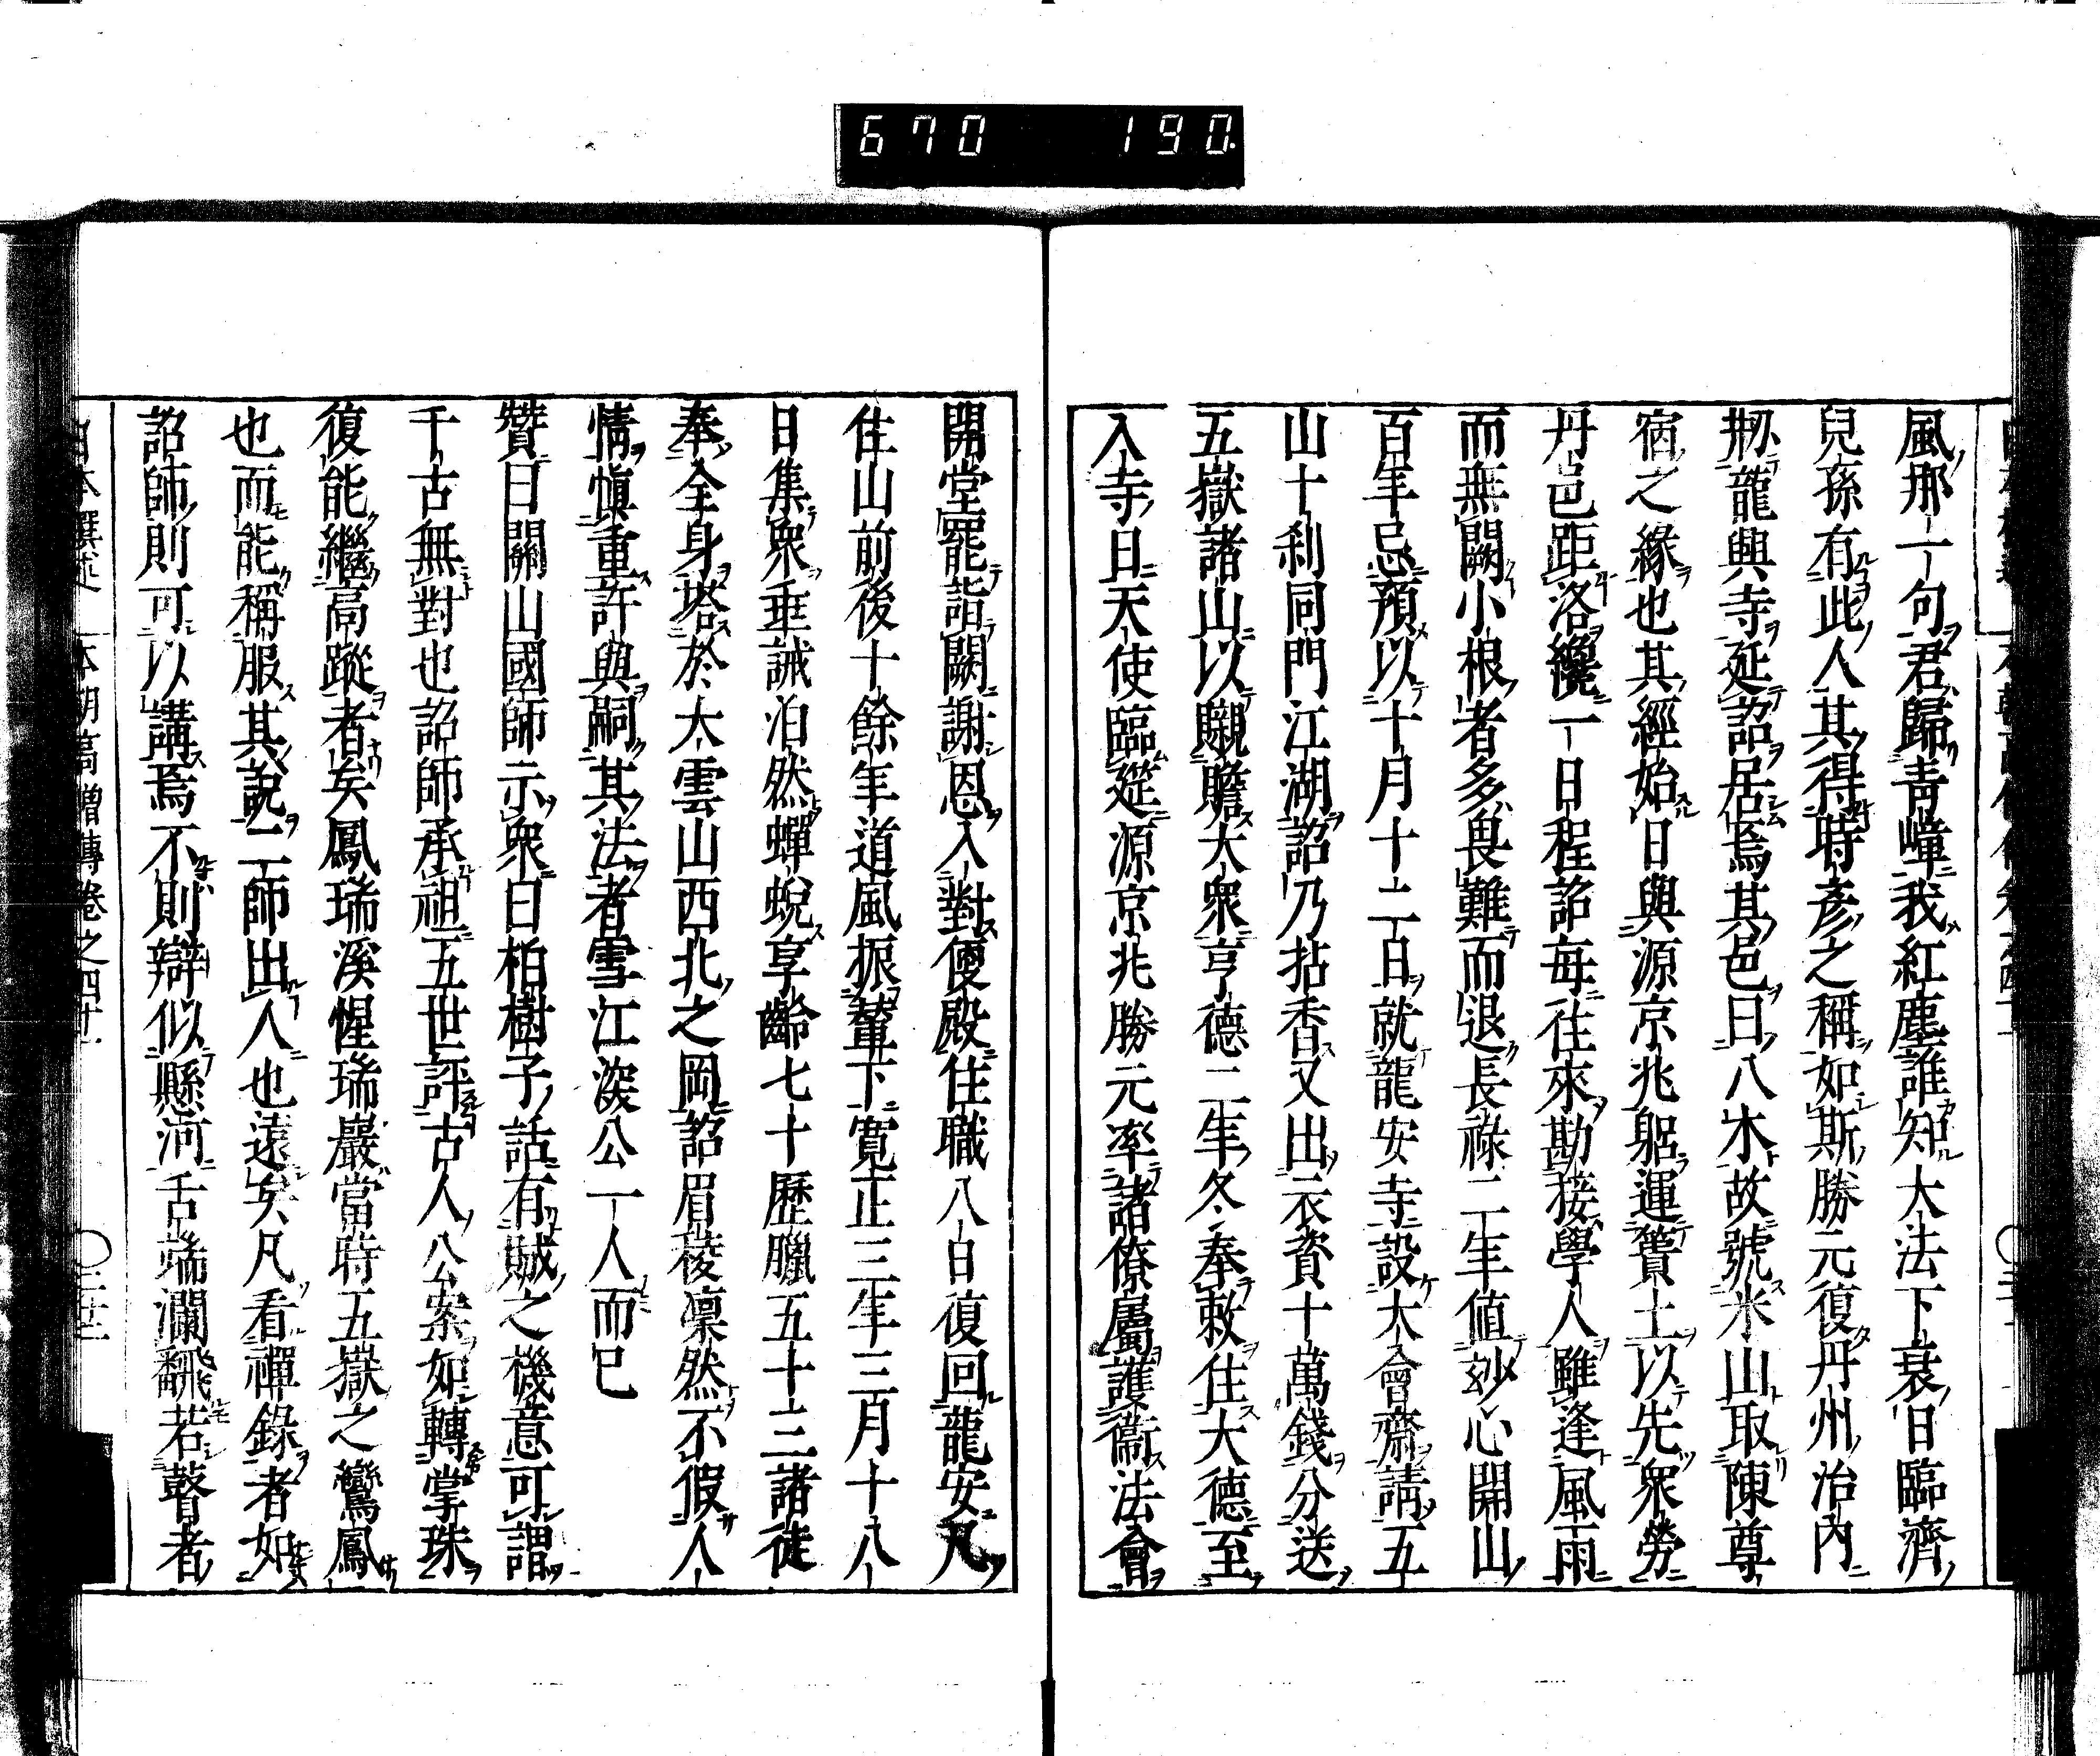 670 190
風那一句君歸青嶂我紅塵誰知大法下衰日臨濟
兒孫有此人其得時彥之稱如斯勝元復丹州治內
刱龍興寺延詔居焉其邑曰八木故號米山取陳尊
宿之緣也其經始日與源京兆躬運簣土以先衆勞
丹邑距洛纔一日程詔每往來勘接學人雖逢風雨
而無闕小根者多畏難而退長祿二年值妙心開山
百年忌預以十月十二日就龍安寺設大會齋請五
山十刹同門江湖詔乃拈香又出衣資十萬錢分送
五嶽諸山以䞋贍大衆亨德二年冬奉敕住大德至
入寺日天使臨筵源京兆勝元率諸僚屬護衞法會
開堂罷詣闕謝恩入對便殿住職八日復回龍安凡
住山前後十餘年道風振輦下寬正三年三月十八
日集衆垂誡泊然蟬蛻享齡七十歷臘五十三諸徒
奉全身塔於大雲山西北之岡詔眉稜凜然不假人
情愼重許與嗣其法者雪江深公一人而已
贊曰關山國師示衆曰柏樹子話有賊之機意可謂
千古無對也詔師承祖五世評古人公案如轉掌珠
復能繼高蹤者矣鳳瑞溪惺瑞巖當時五嶽之鸞鳳
也而能稱服其說二師出人也遠矣凡看禪錄者如
詔師則可以講焉不則辯似懸河舌端瀾飜若瞽者
日本撰述 本朝高僧傳卷之四十一